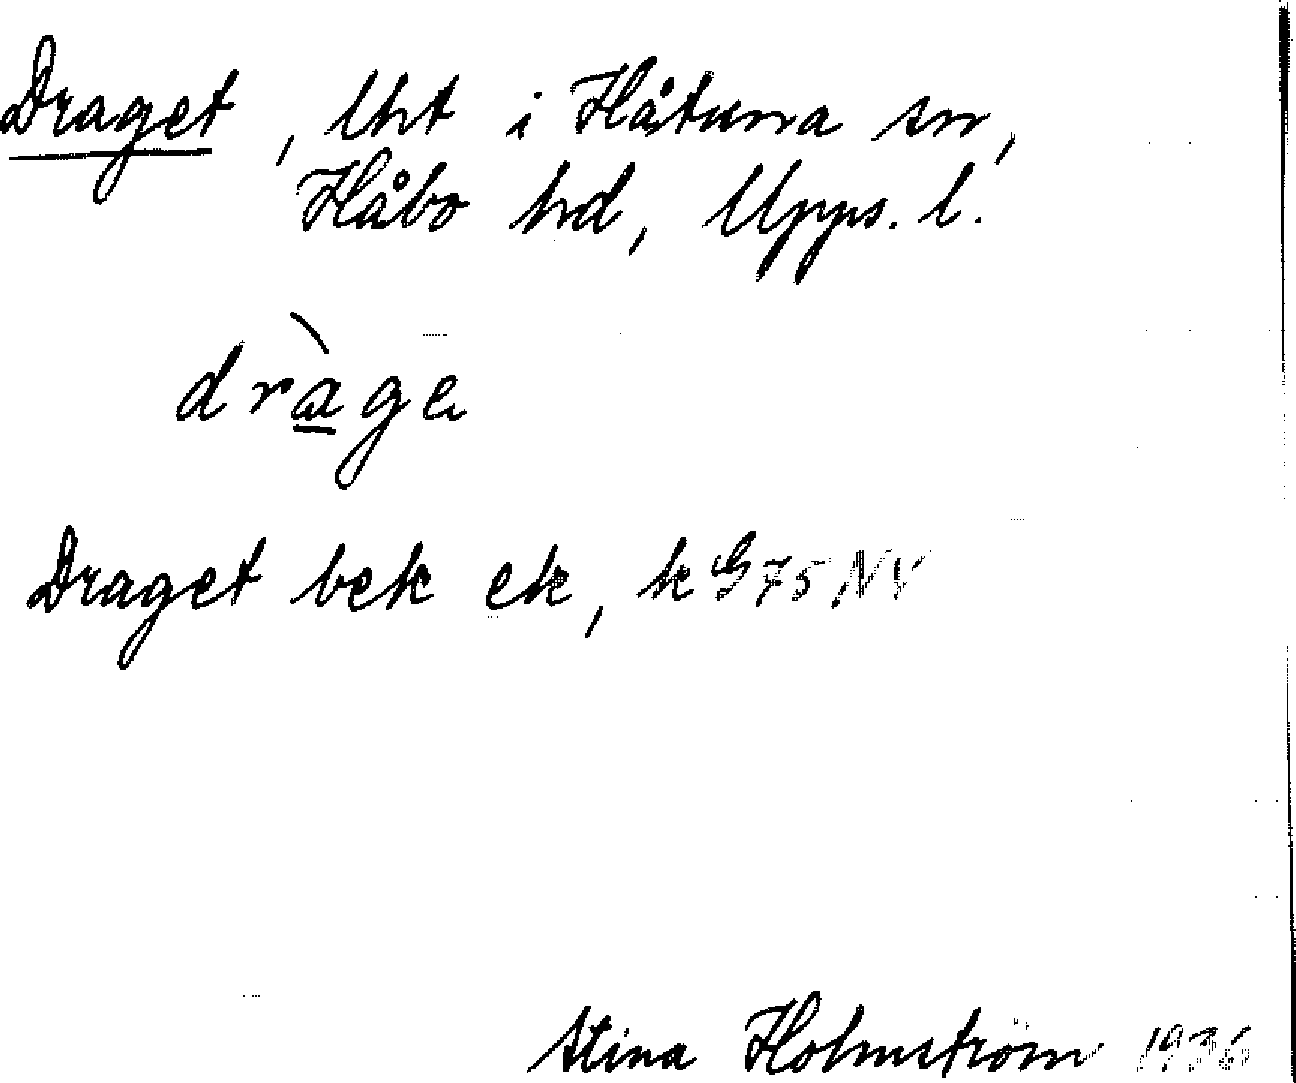 Draget, lht i Håtuna sn,
Håbo hd, Upps. l.
dràge
Draget bek ek, k G75 NV
Stina Holmström 1936